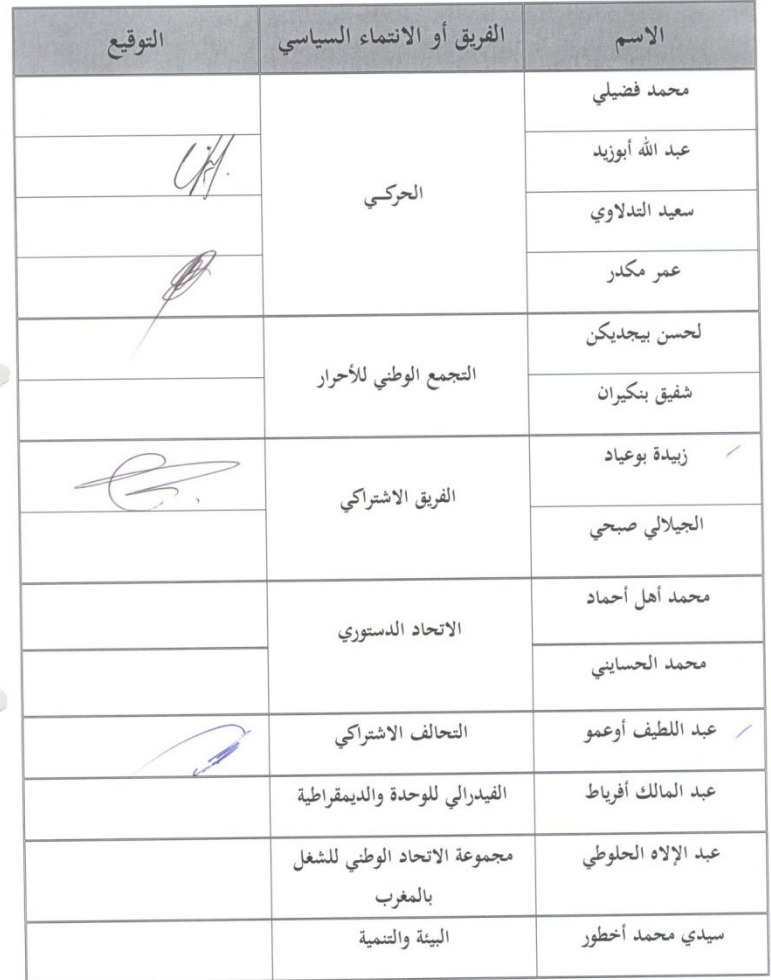 الاسم الفريق أو الانتماء السياسي التوقيع
محمد فضيلي
عبد الله أبوزيد
الحركـي
سعيد التدلاوي
عمر مكدر
لحسن بيجديكن
التجمع الوطني للأحرار
شفيق بنكيران
زبيدة بوعياد
الفريق الاشتراكي
الجيلالي صبحي
محمد أهل أحماد
الاتحاد الدستوري
محمد الحسايني
عبد اللطيف أوعمو التحالف الاشتراكي
عبد المالك أفرياط الفيدرالي للوحدة والديمقراطية
عبد الإلاه الحلوطي مجموعة الاتحاد الوطني للشغل
بالمغرب
سيدي محمد أخطور البيئة والتنمية